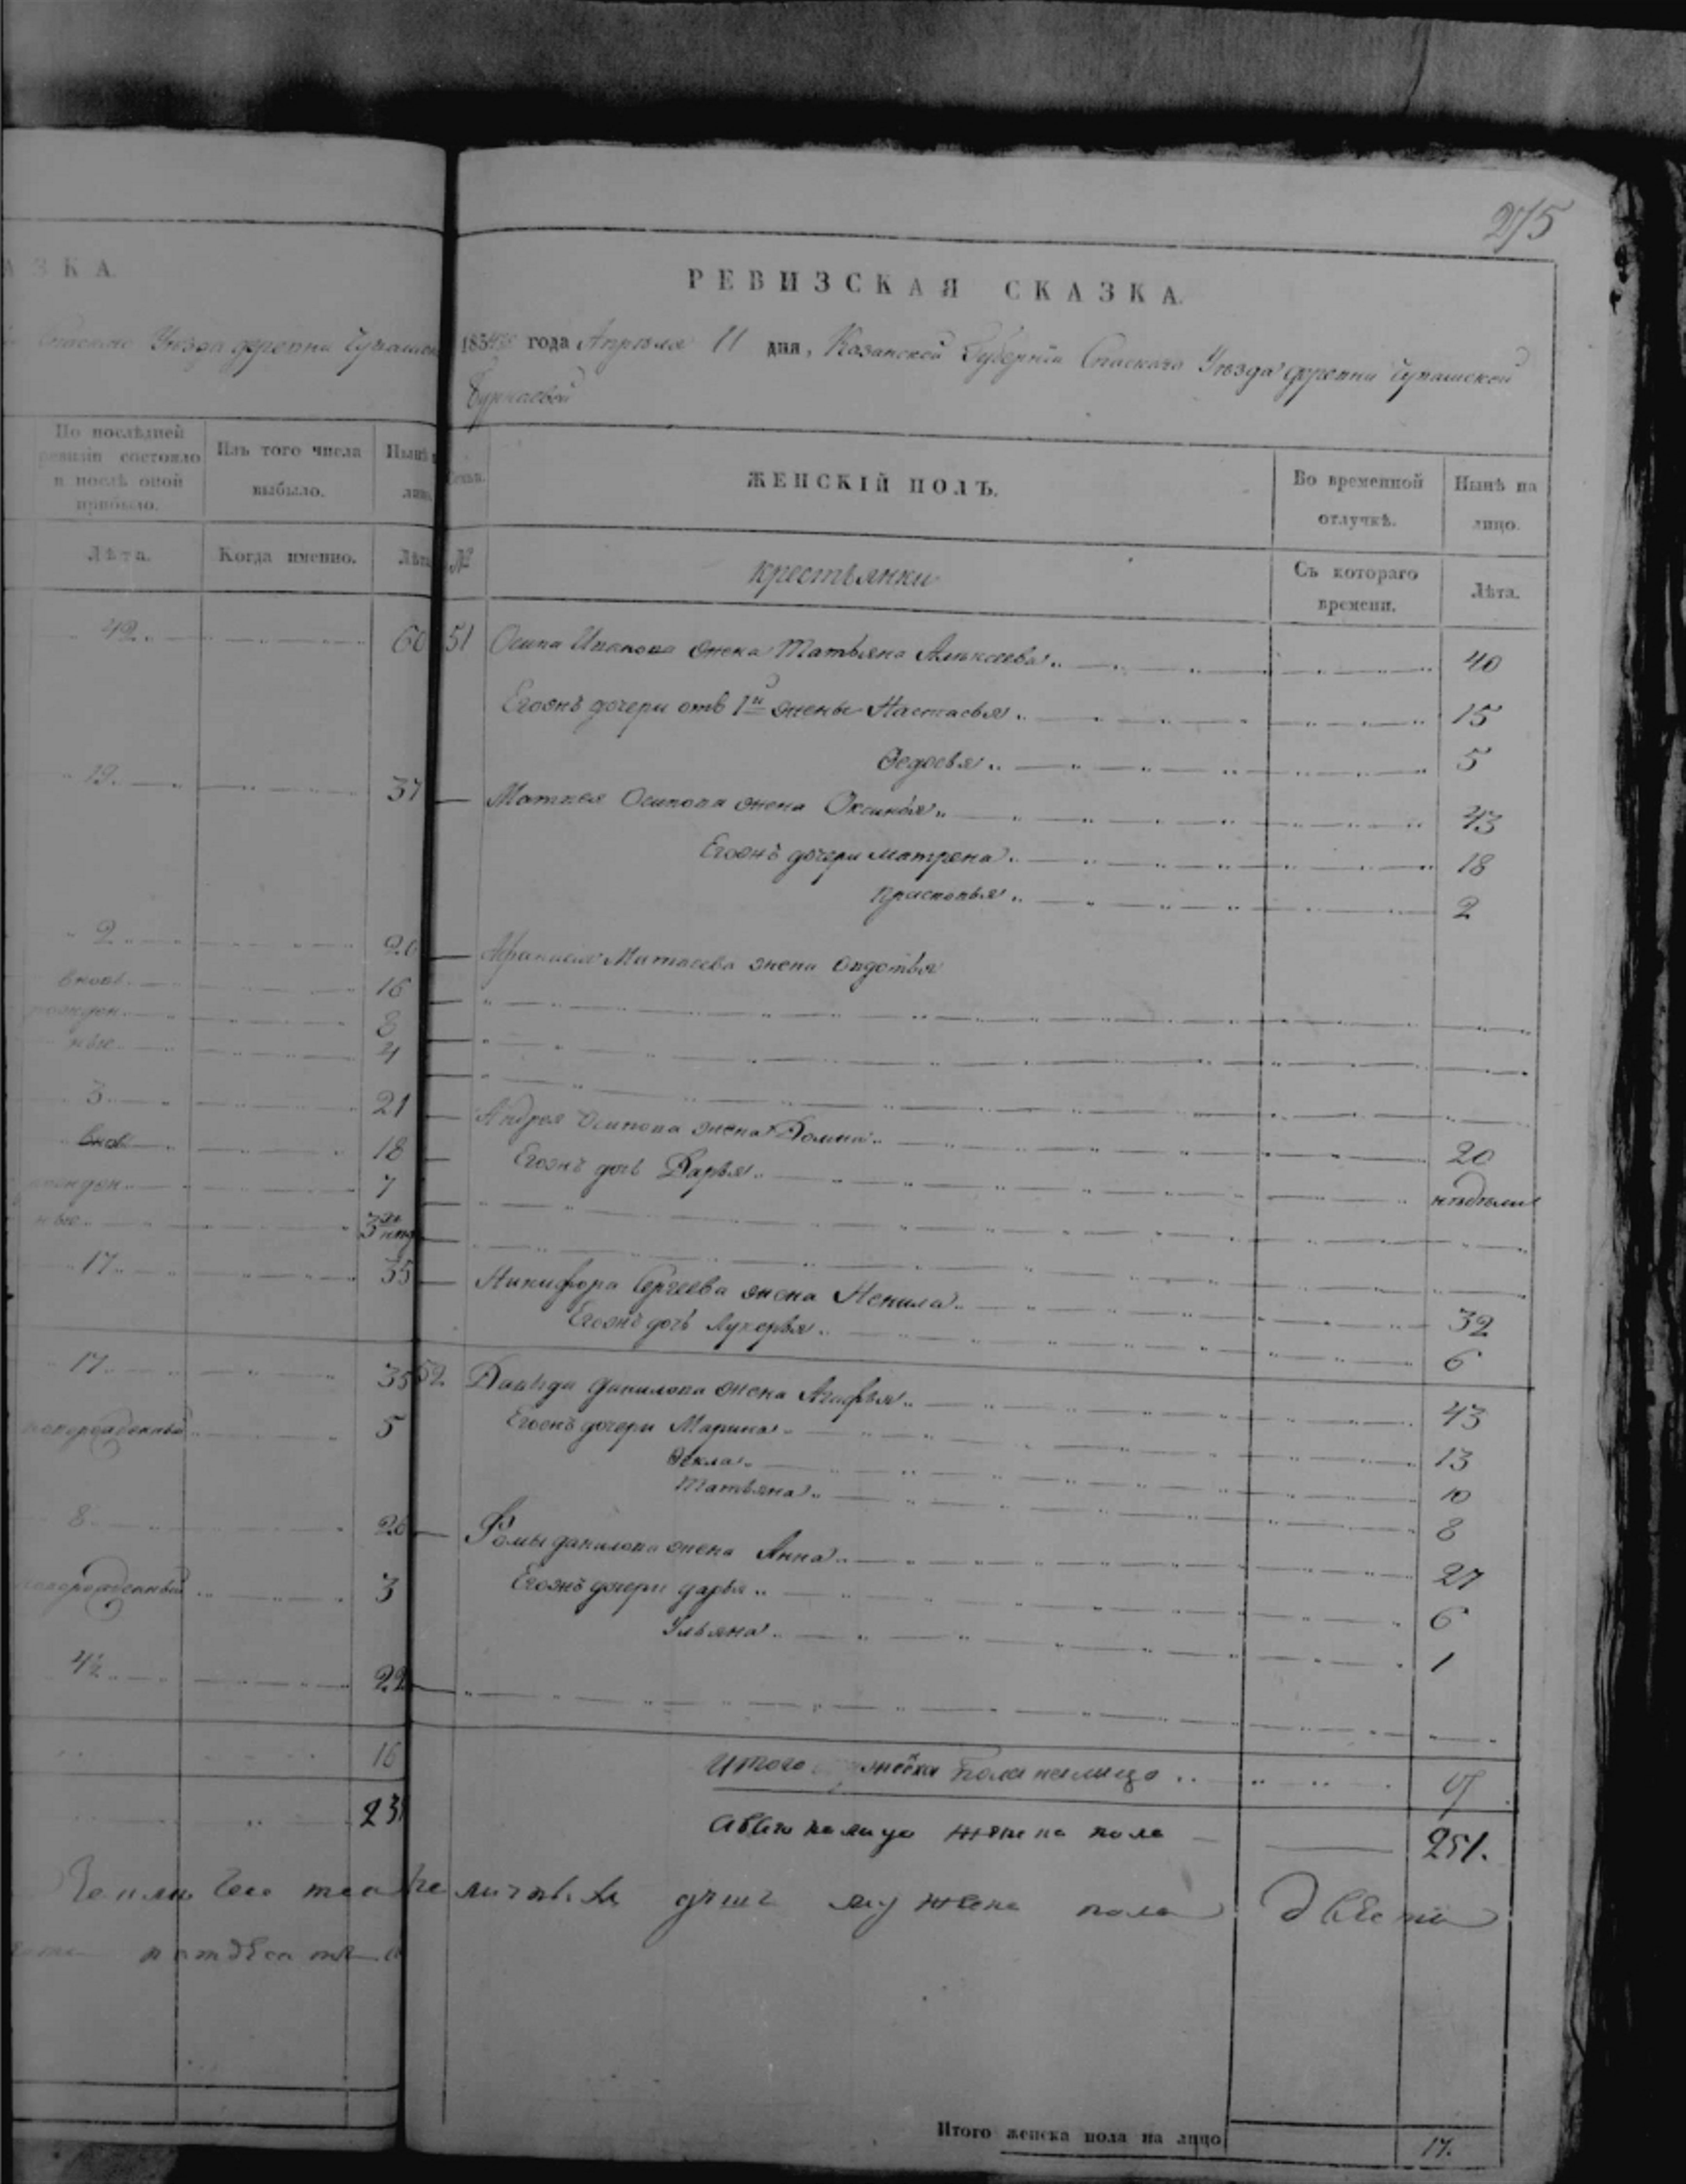 275
АЗКА.
РЕВИЗСКАЯ СКАЗКА.
Спаскаго Уѣзда деревни Чувашской
года Апрѣля 11 дня, Казанской Губерніи Спаскаго Уѣзда деревни Чувашской
Бурнаевой
По послѣдней ревизіи состояло и послѣ оной прибыло.
Изъ того числа выбыло.
Нынѣ на лицо.
Лѣта.
Когда именно.
Лѣта
№
ЖЕНСКІЙ ПОЛЪ.
Во временной отлучкѣ.
Нынѣ на лицо.
крестьянки
Съ котораго времени.
Лѣта.
42 60
51 Осипа жена Татьяна Алексеева 40
Егожъ дочери отъ 1й жены Настасья 15
Федосья 5
19 37
Матвея Осипова жена Оксинья 43
Егожъ дочери Матрена 18
Прасковья 2
2 20
Афанасья Матвеева жена
вновь 16
рожден 8
ные 4
3 21
Андрея Осипова жена Домна 20
внов 18
Егожъ дочь Дарья недѣли
рожден 7
ные 3 нед
17 35
Никифора Сергеева жена Ненила 32
Егожъ дочь Лукерья 6
17 35
52 Давыда Данилова жена Агафья 43
новорожденный 5
Егожъ дочери Марина 13
Фекла 10
Татьяна 8
8 26
Фомы Данилова жена Анна 27
новорожденный 3
Егожъ дочери Дарья 6
Ульяна 1
4½ 22
16
Итого женска пола налицо 17
231
А всего на лицо женска пола 251.
душ мужеска пола двести
Итого женска пола на лицо 17.